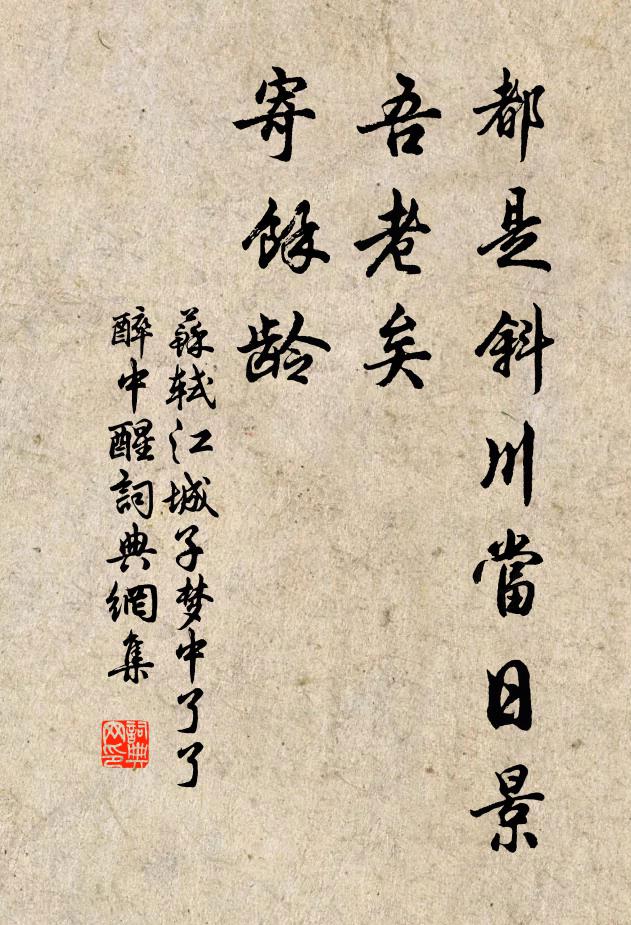 都是斜川當日景
吾老矣
寄餘齡
蘇軾江城子梦中了了
醉中醒詞典網集
詞典網印